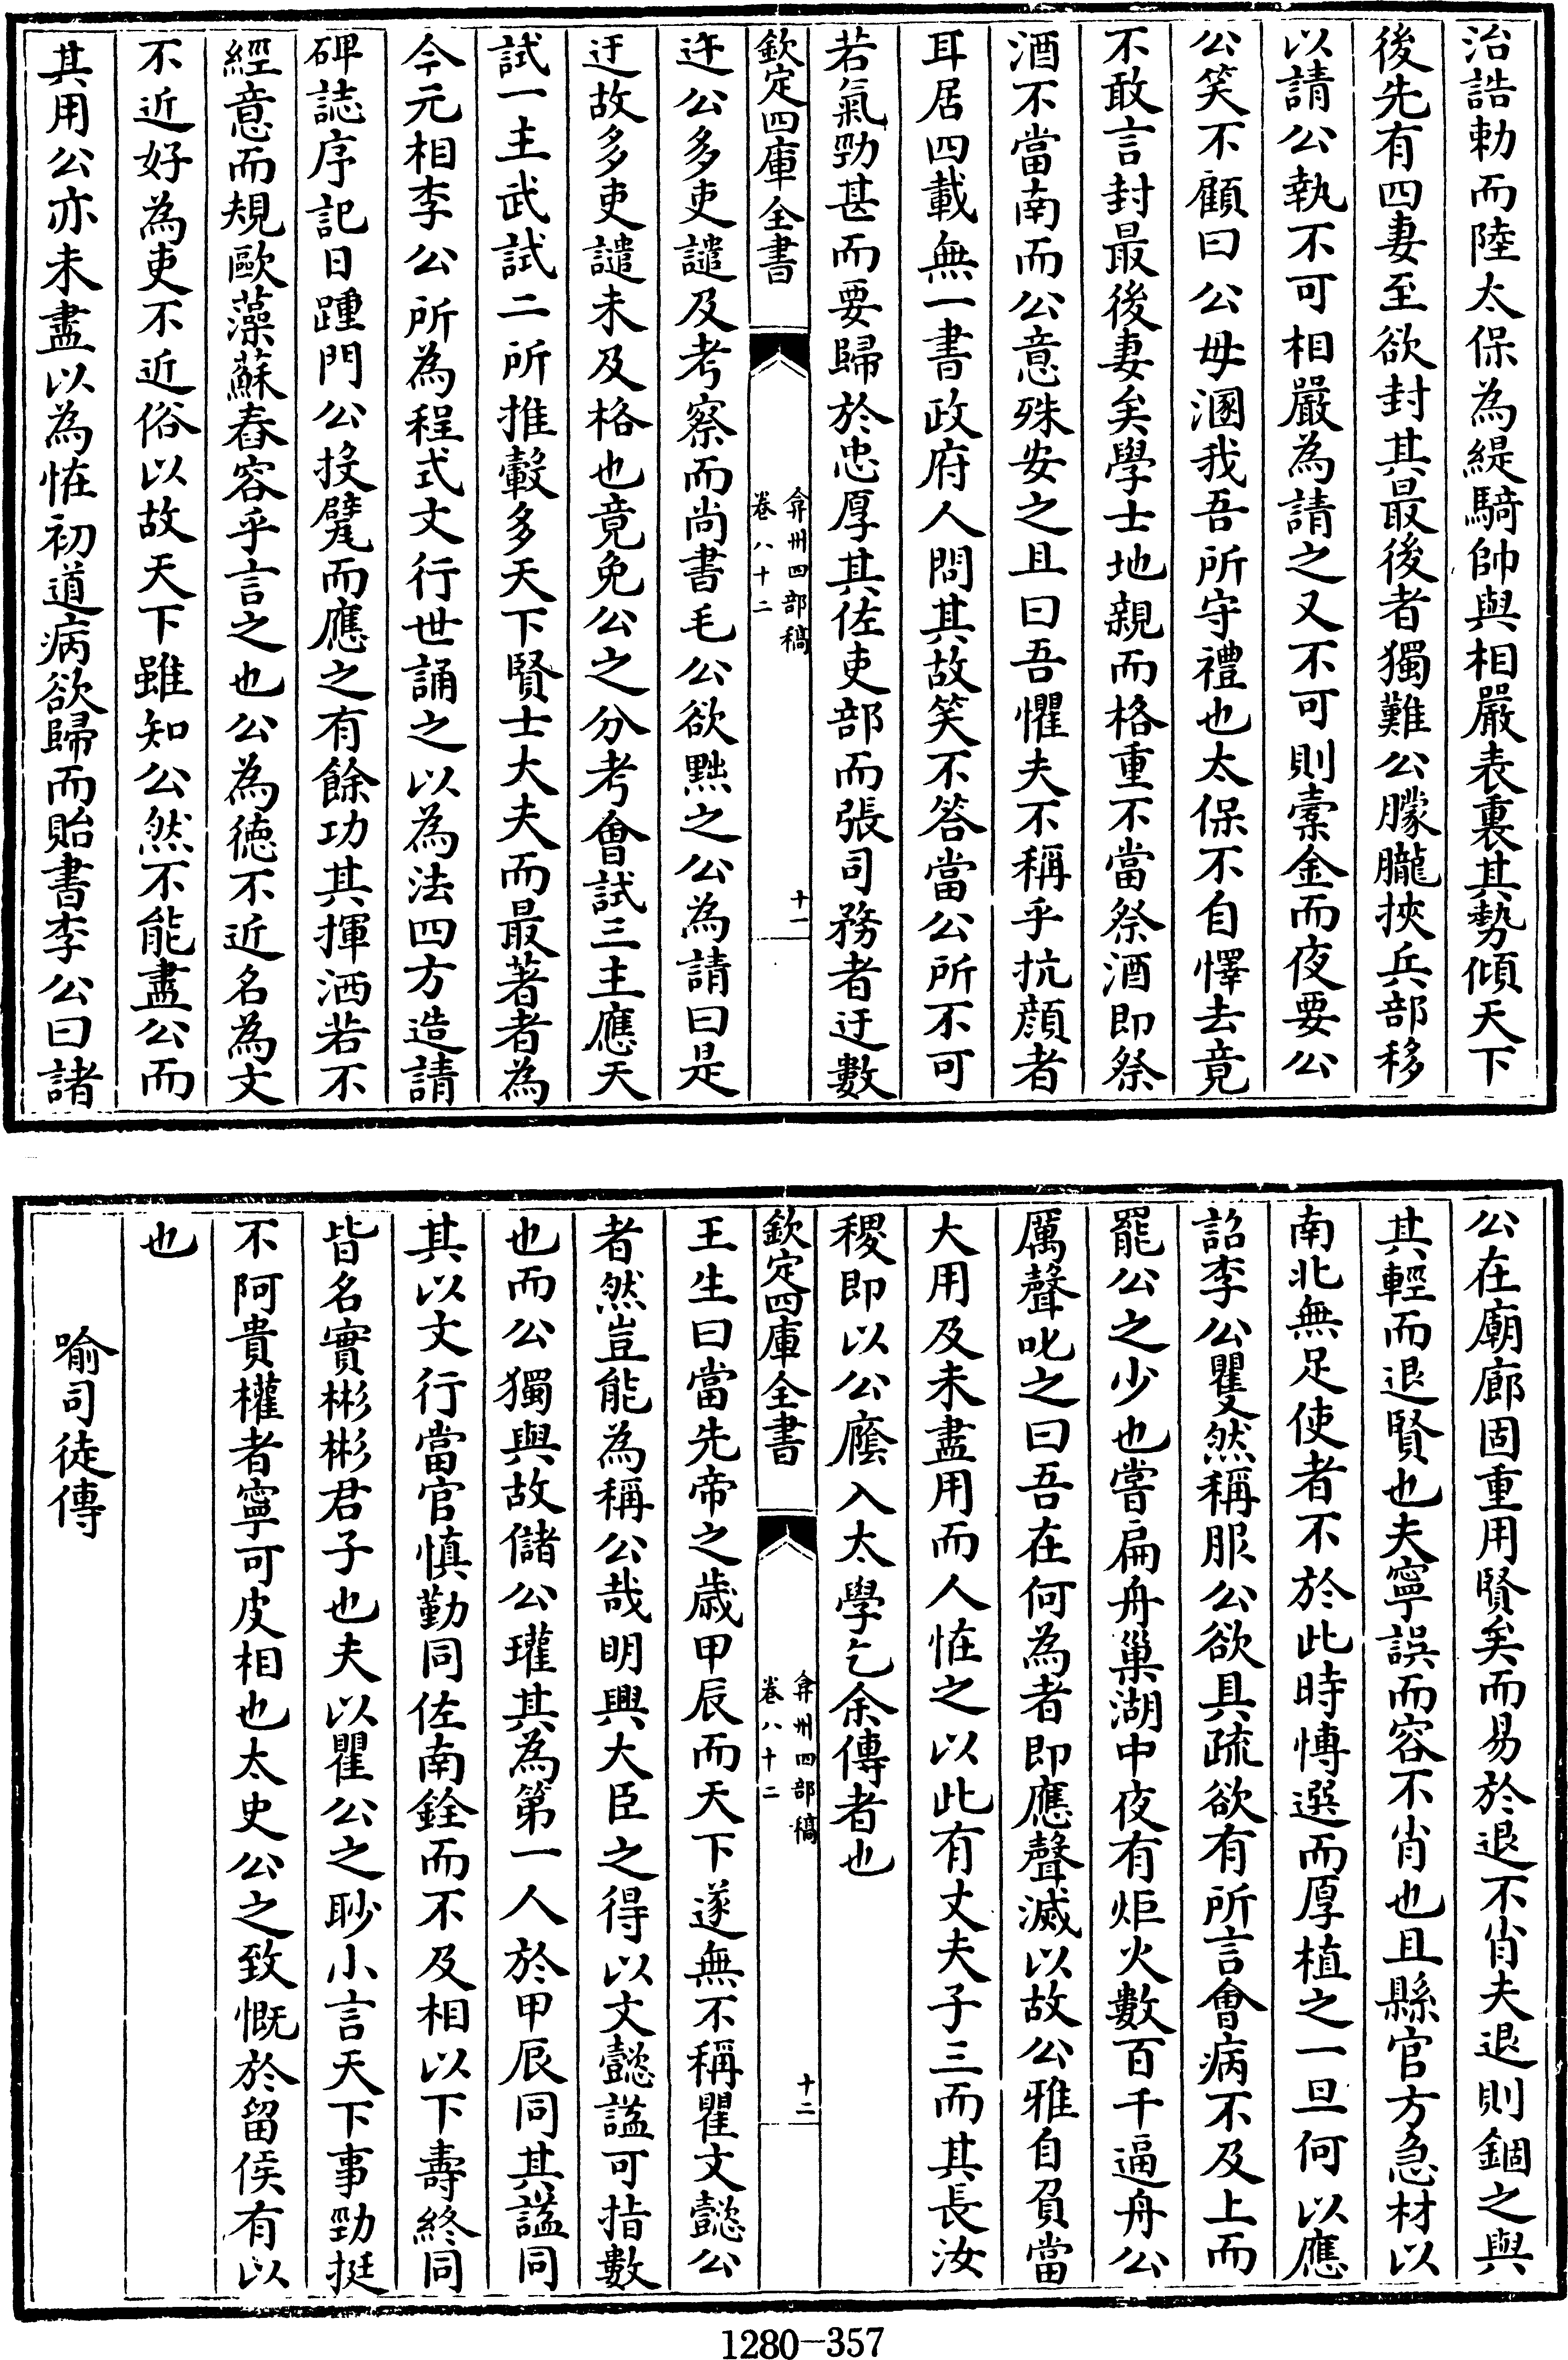 治誥勅而陸太保為緹騎帥與相嚴表裏其勢傾天下
後先有四妻至欲封其最後者獨難公朦朧挾兵部移
以請公執不可相嚴為請之又不可則橐金而夜要公
公笑不顧曰公毋溷我吾所守禮也太保不自懌去竟
不敢言封最後妻矣學士地親而格重不當祭酒即祭
酒不當南而公意殊安之且曰吾懼夫不稱乎抗顔者
耳居四載無一書政府人問其故笑不答當公所不可
若氣勁甚而要歸於忠厚其佐吏部而張司務者迂數
欽定四庫全書
弇州四部稿
卷八十二
十一
迕公多吏譴及考察而尚書毛公欲黜之公為請曰是
迂故多吏譴未及格也竟免公之分考會試三主應天
試一主武試二所推轂多天下賢士大夫而最著者為
今元相李公所為程式文行世誦之以為法四方造請
碑誌序記日踵門公投甓而應之有餘功其揮洒若不
經意而規歐藻蘇舂容乎言之也公為徳不近名為文
不近好為吏不近俗以故天下雖知公然不能盡公而
其用公亦未盡以為恠初道病欲歸而貽書李公曰諸
公在廟廊固重用賢矣而易於退不肖夫退則錮之與
其輕而退賢也夫寧誤而容不肖也且縣官方急材以
南北無足使者不於此時慱選而厚植之一旦何以應
詔李公瞿然稱服公欲具疏欲有所言會病不及上而
罷公之少也嘗扁舟巢湖中夜有炬火數百千逼舟公
厲聲叱之曰吾在何為者即應聲滅以故公雅自負當
大用及未盡用而人恠之以此有丈夫子三而其長汝
稷即以公廕入太學乞余傳者也
欽定四庫全書
弇州四部稿
卷八十二
十二
王生曰當先帝之歳甲辰而天下遂無不稱瞿文懿公
者然豈能為稱公哉明興大臣之得以文懿諡可指數
也而公獨與故儲公瓘其為第一人於甲辰同其諡同
其以文行當官慎勤同佐南銓而不及相以下壽終同
皆名實彬彬君子也夫以瞿公之眇小言天下事勁挺
不阿貴權者寧可皮相也太史公之致慨於留侯有以
也
喻司徒傳
1280—357